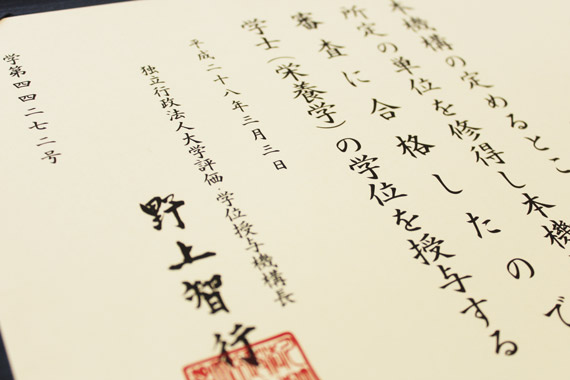 本機構の定めるとこ
所定の単位を修得し本機
審査に合格したので
学士(栄養学)の学位を授与する
平成二十八年三月三日
独立行政法人大学評価・学位授与機構長
野上智行
学第四四二七二号